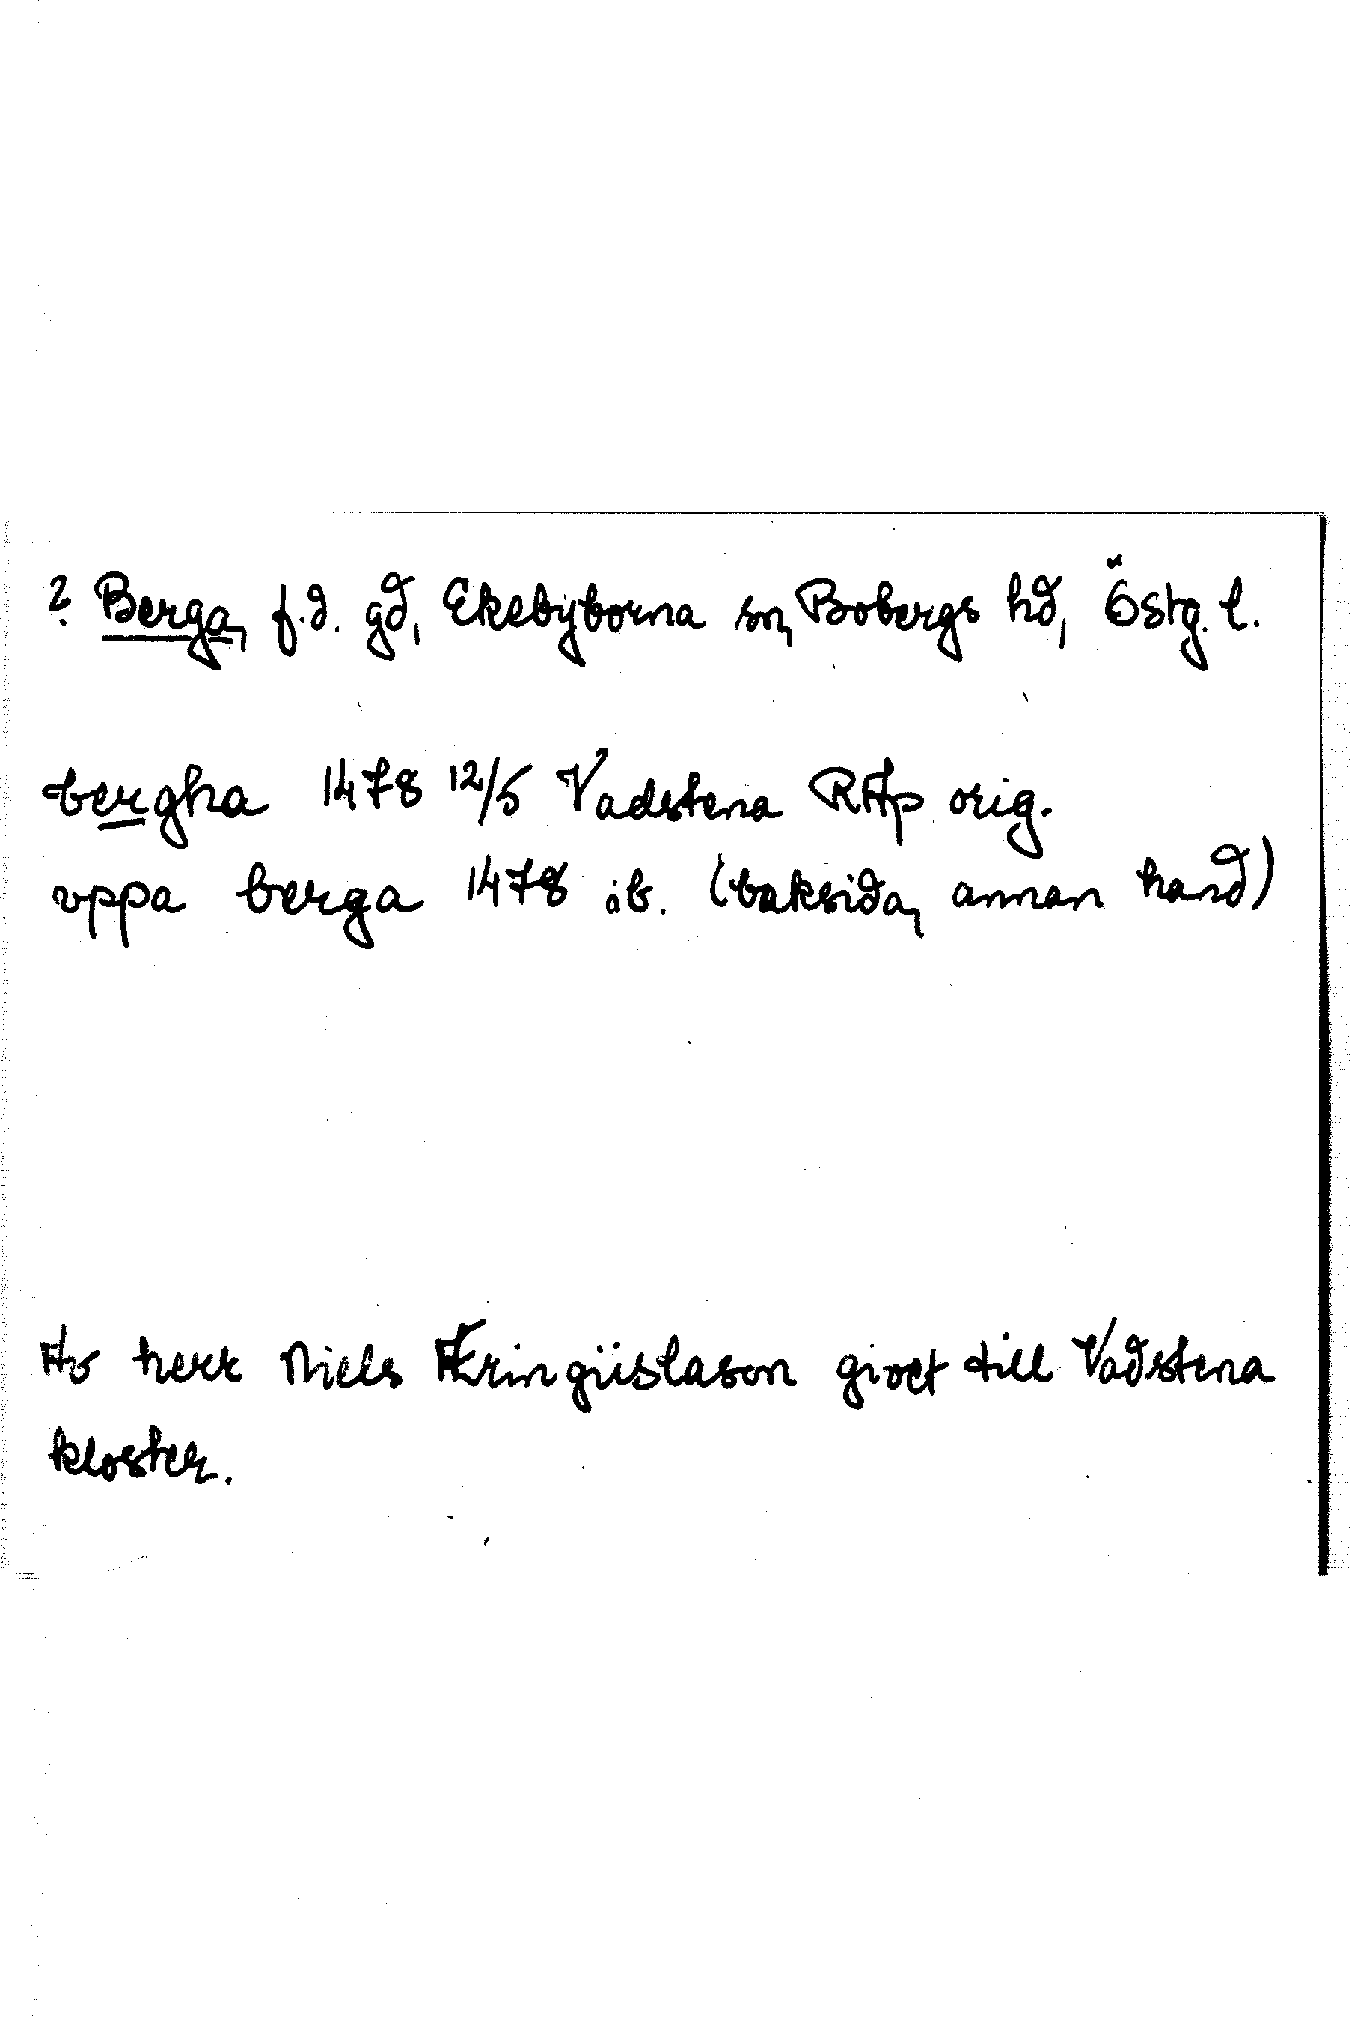 ? Berga, f.d. gd, Ekebyborna sn, Bobergs hd, Östg. l.
bergha 1478 12/5 Vadstena RAp orig.
vppa berga 1478 ib. (baksida, annan hand)
Av herr Niels Æringiislason givet till Vadstena
kloster.